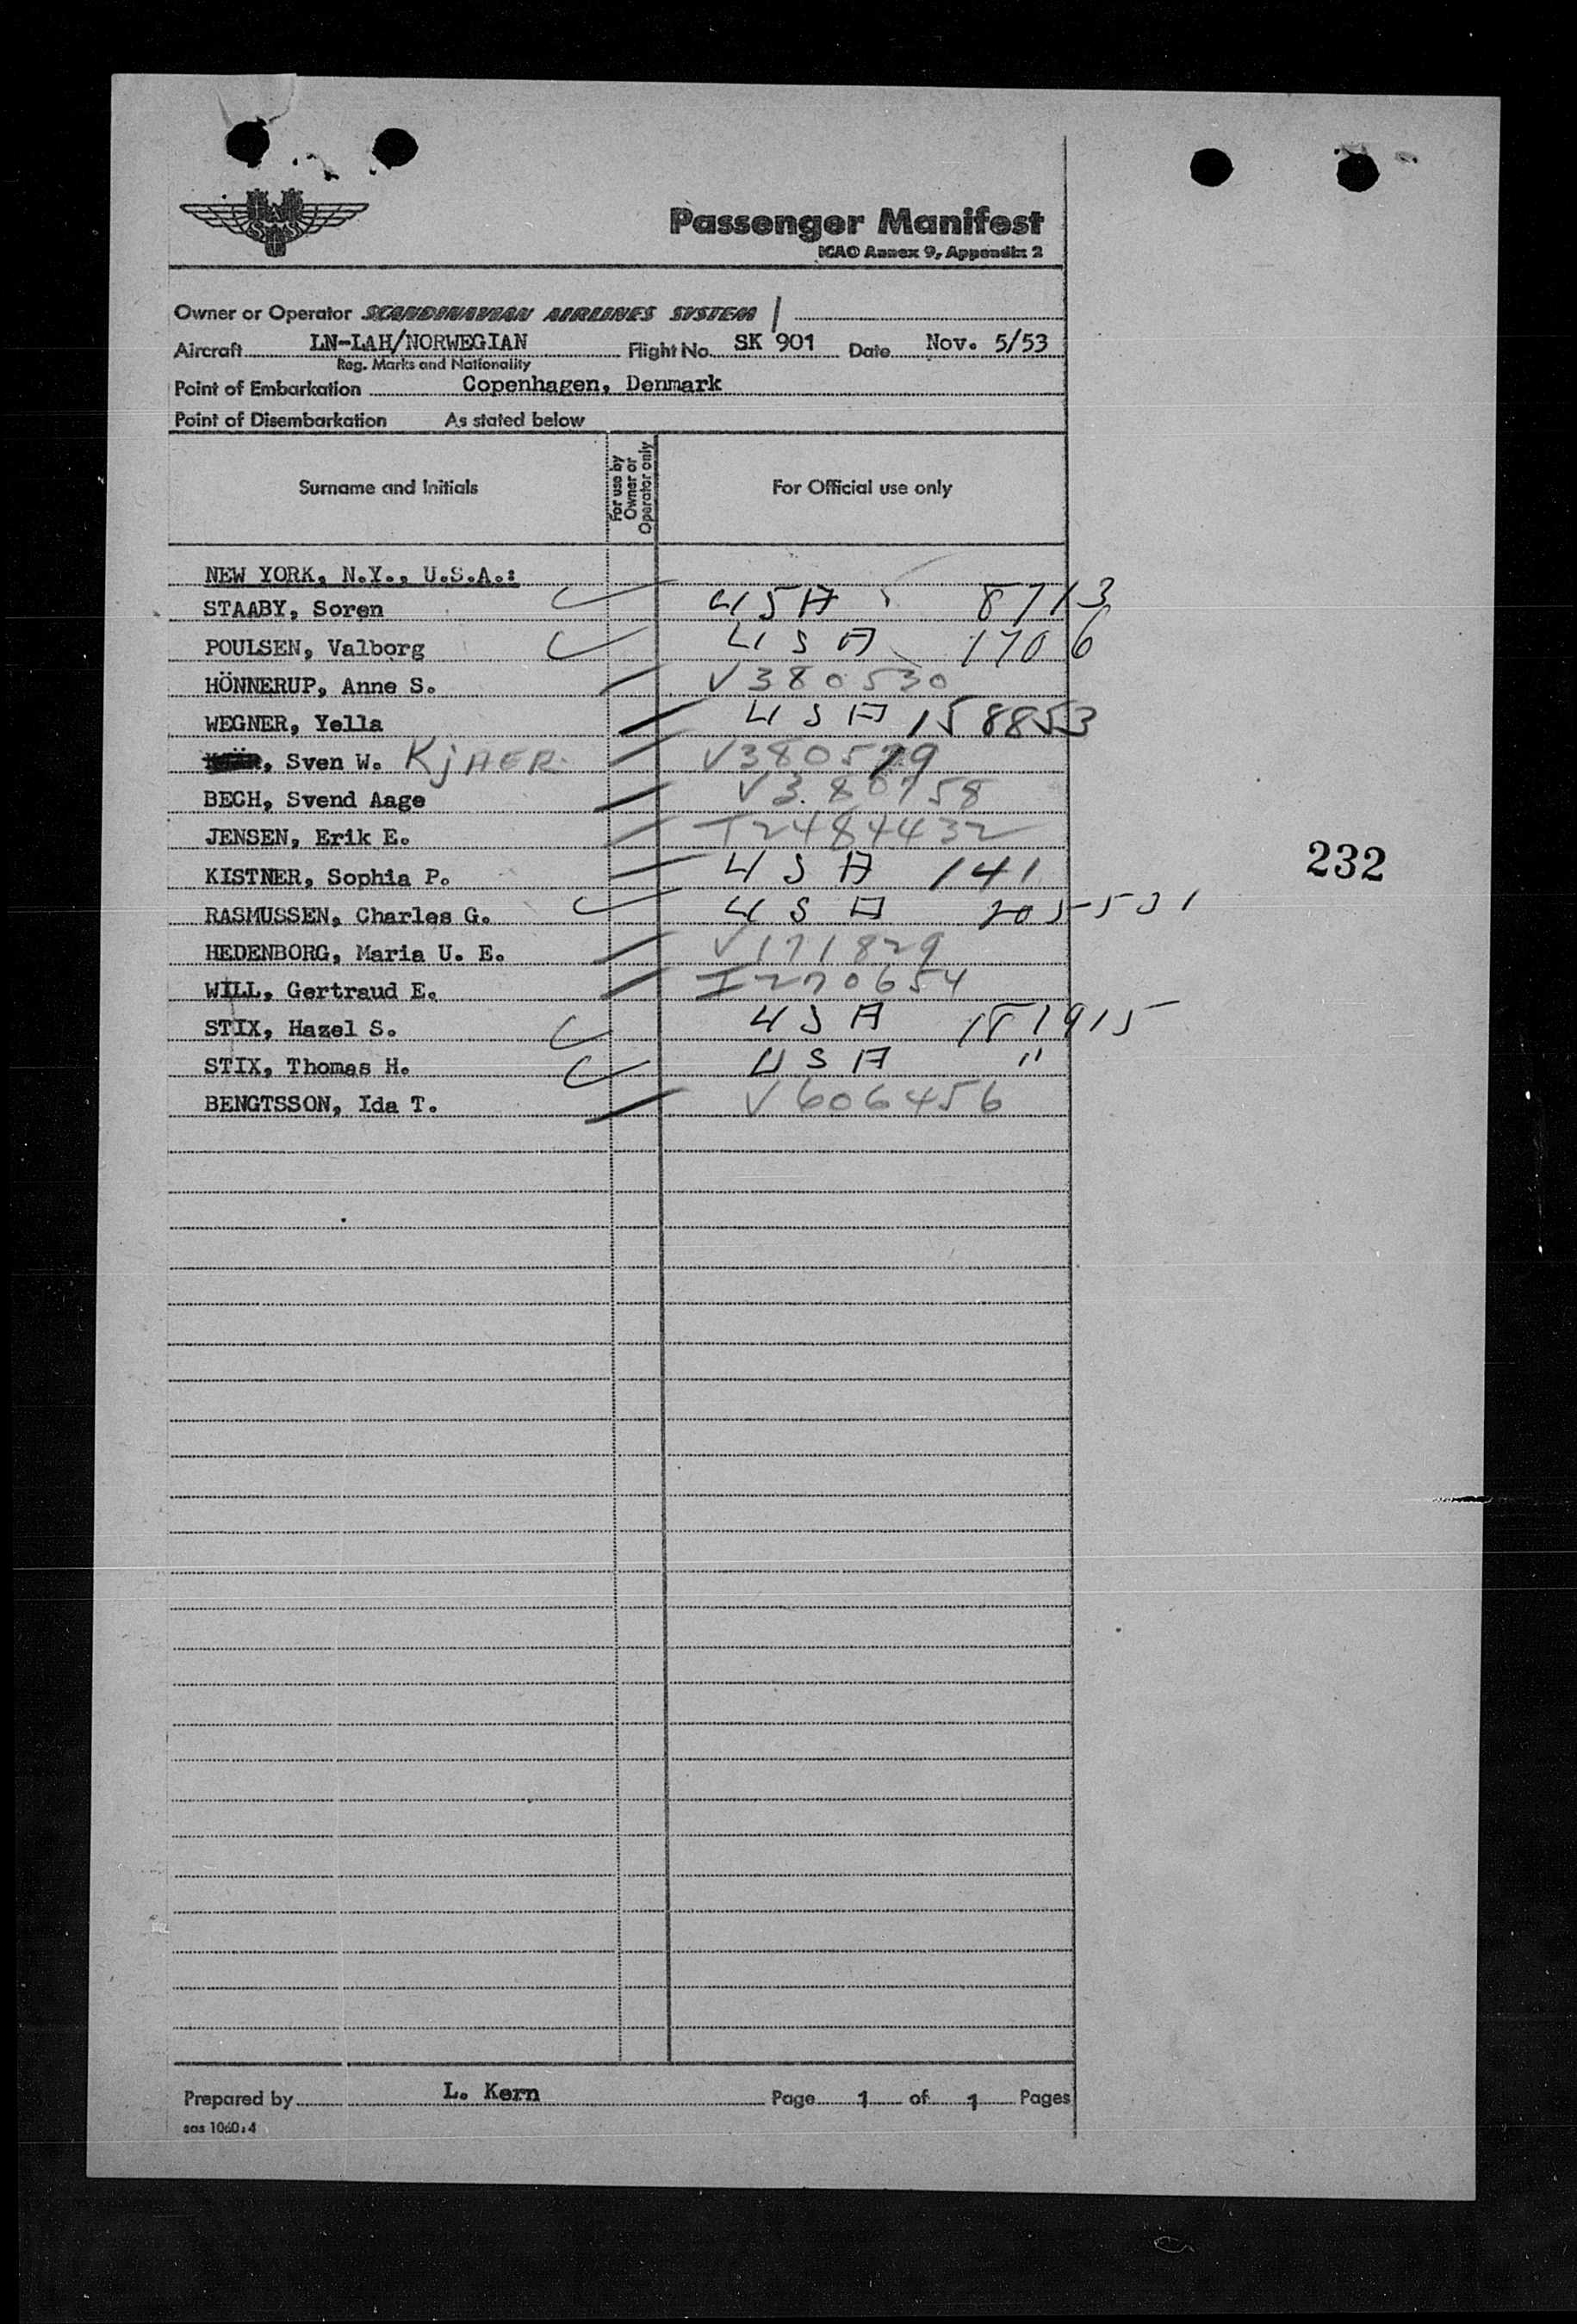 SAS
Passenger Manifest
ICAO Annex 9, Appendix 2
Owner or Operator SCANDINAVIAN AIRLINES SYSTEM
Aircraft LN-LAH/NORWEGIAN Flight No. SK 901 Date Nov. 5/53
Reg. Marks and Nationality
Point of Embarkation Copenhagen, Denmark
Point of Disembarkation As stated below
Surname and Initials For use by Owner or Operator only For Official use only
NEW YORK, N.Y., U.S.A.:
STAABY, Soren USA 8713
POULSEN, Valborg USA 1706
HÖNNERUP, Anne S. V380530
WEGNER, Yella USA 158853
, Sven W. KjAER
BECH, Svend Aage V380758
JENSEN, Erik E. T2484432
KISTNER, Sophia P. USA 141
RASMUSSEN, Charles G. USA
232
HEDENBORG, Maria U. E. V171829
WILL, Gertraud E. I270654
STIX, Hazel S. USA 181915
STIX, Thomas H. USA "
BENGTSSON, Ida T. V606456
Prepared by L. Kern Page 1 of 1 Pages
sas 1060:4